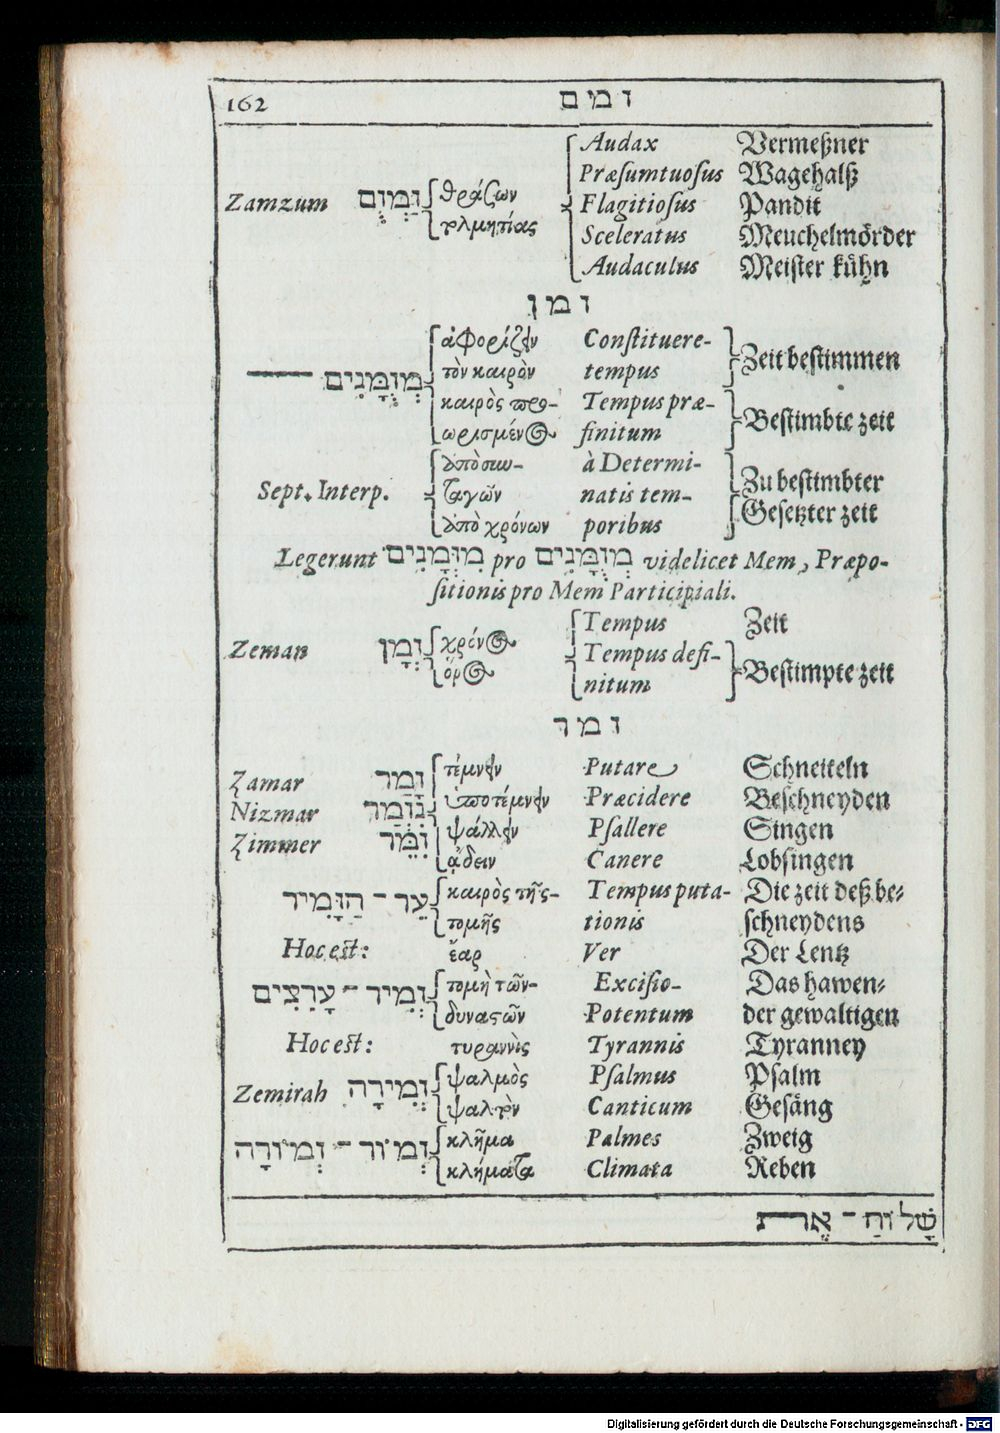 162 זמם
Audax Vermeßner
Præſumtuoſus Wagehalß
Zamzum זַמְזֻם θράζων Flagitioſus Pandit
Sceleratus Meuchelmörder
Audaculus Meiſter kühn
זמן
ἀφορίζειν Conſtituere- Zeit beſtimmen
τὸν καιρὸν tempus
מְזֻמָּנִים καιρὸς προ- Tempus præ- Beſtimbte zeit
ωρισμένος finitum
ἀπὸ συν- à Determi- Zu beſtimbter
Sept. Interp. ταγῶν natis tem- Geſetzter zeit
ἀπὸ χρόνων poribus
Legerunt מִזְּמָנִים pro מְזֻמָּנִים videlicet Mem, Præpo-
ſitionis pro Mem Participiali.
Tempus Zeit
Zeman זְמָן χρόνος Tempus defi- Beſtimpte zeit
ὅρος nitum
זמר
Zamar זָמַר τέμνειν Putare Schneiteln
Nizmar נִזְמַר ὑποτέμνειν Præcidere Beſchneyden
Zimmer זִמֵּר ψάλλειν Pſallere Singen
ᾄδειν Canere Lobſingen
עֵר־הַזָּמִיר καιρὸς τῆς- Tempus puta- Die zeit deß be⸗
τομῆς tionis ſchneydens
Hoc est: ἔαρ Ver Der Lentz
זְמִיר־עָרִצִים τομὴ τῶν- Exciſio- Das hawen⸗
δυναστῶν Potentum der gewaltigen
Hoc est: τυραννὶς Tyrannis Tyranney
Zemirah זְמִירָה ψαλμὸς Pſalmus Pſalm
Canticum Geſäng
זְמוֹר־זְמוֹרָה κλῆμα Palmes Zweig
κλήματα Climata Reben